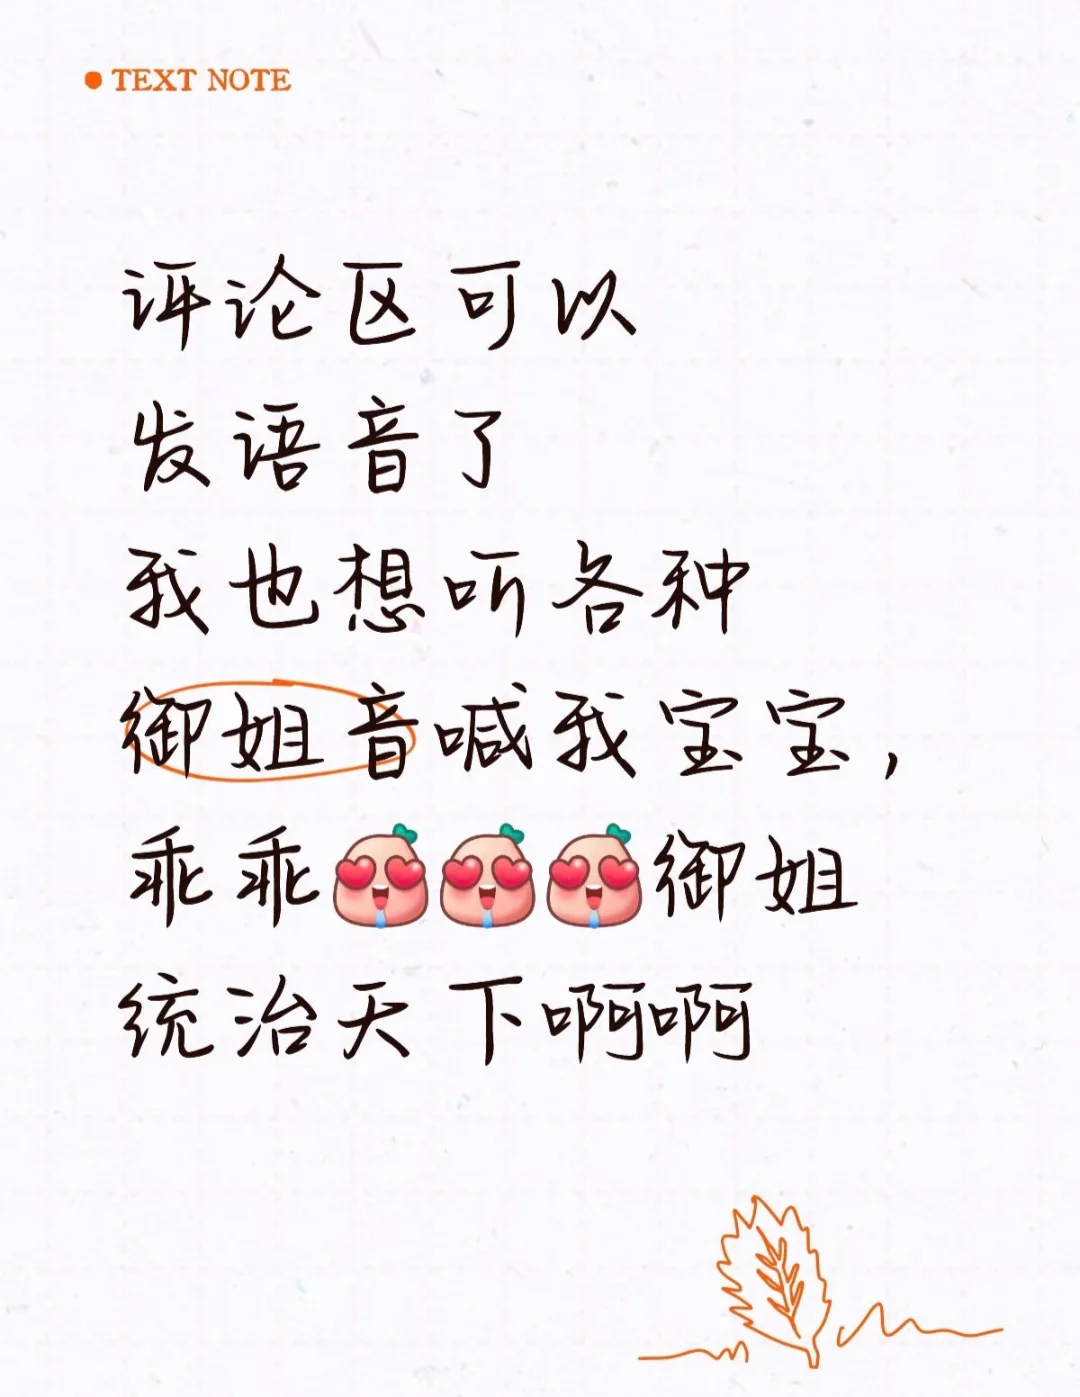 TEXT NOTE
评论区可以
发语音了
我也想听各种
御姐音喊我宝宝，
乖乖御姐
统治天下啊啊